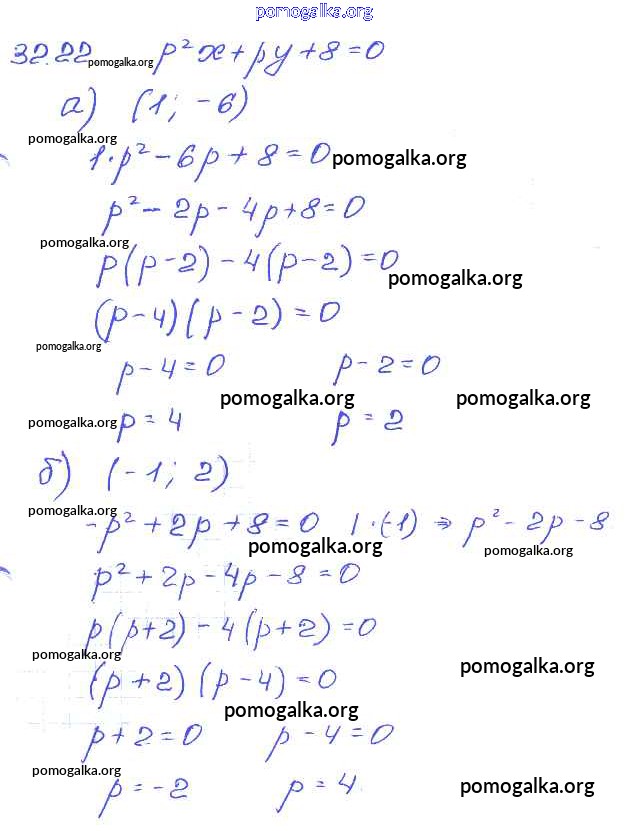 pomogalka.org
32.22 pomogalka.org p²x + py + 8 = 0
а) (1; -6)
pomogalka.org
1·p² - 6p + 8 = 0 pomogalka.org
p² - 2p - 4p + 8 = 0
pomogalka.org
p(p-2) - 4(p-2) = 0
pomogalka.org
(p-4)(p-2) = 0
pomogalka.org
p - 4 = 0 p - 2 = 0
pomogalka.org pomogalka.org
pomogalka.org p = 4 p = 2
б) (-1; 2)
pomogalka.org
-p² + 2p + 8 = 0 | ·(-1) ⇒ p² - 2p - 8
pomogalka.org pomogalka.org
p² + 2p - 4p - 8 = 0
p(p+2) - 4(p+2) = 0
pomogalka.org pomogalka.org
(p+2)(p-4) = 0
pomogalka.org
p + 2 = 0 p - 4 = 0
pomogalka.org pomogalka.org
p = -2 p = 4